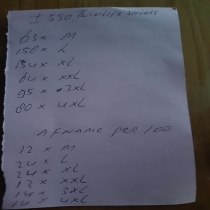 ± 550
63x M
158x L
134x XL
64x XXL
95x 3XL
80x 4XL
AFNAME PER 100
12 x M
24 x L
24 x XL
12 x XXL
14 x 3XL
14 x 4XL